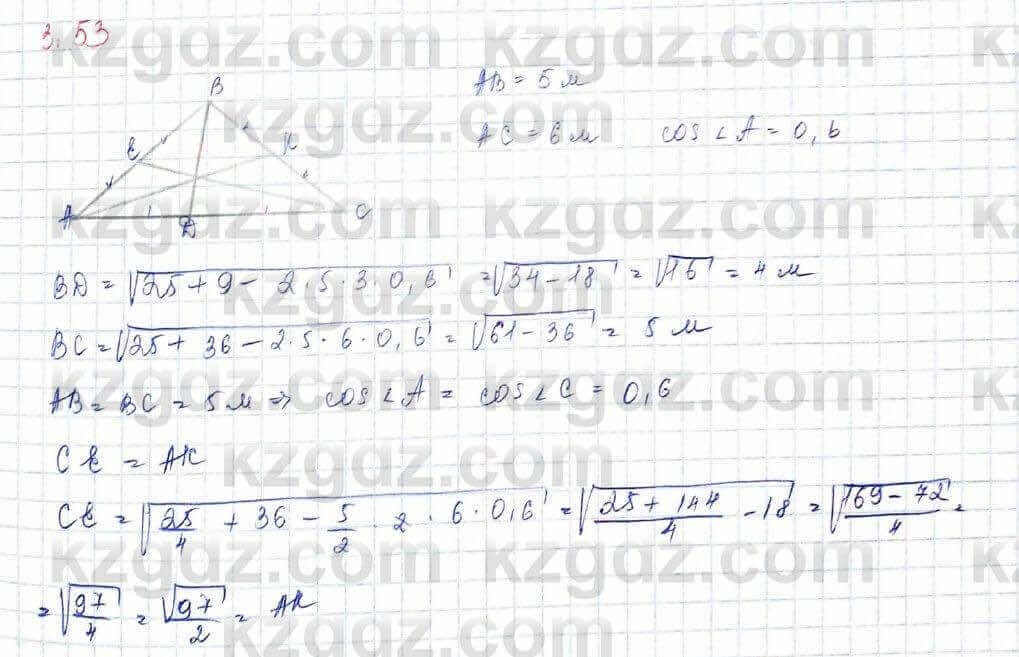 3.53
B
E
K
A
D
C
AB = 5 м
AC = 6 м    cos∠A = 0,6
BD = √(25 + 9 - 2·5·3·0,6) = √(34 - 18) = √16 = 4 м
BC = √(25 + 36 - 2·5·6·0,6) = √(61 - 36) = 5 м
AB = BC = 5 м ⇒ cos∠A = cos∠C = 0,6
CE = AK
CE = √(25/4 + 36 - 5/2 · 2 · 6 · 0,6) = √((25 + 144)/4 - 18) = √((169 - 72)/4) =
= √(97/4) = √97/2 = AK
kzgdz.com